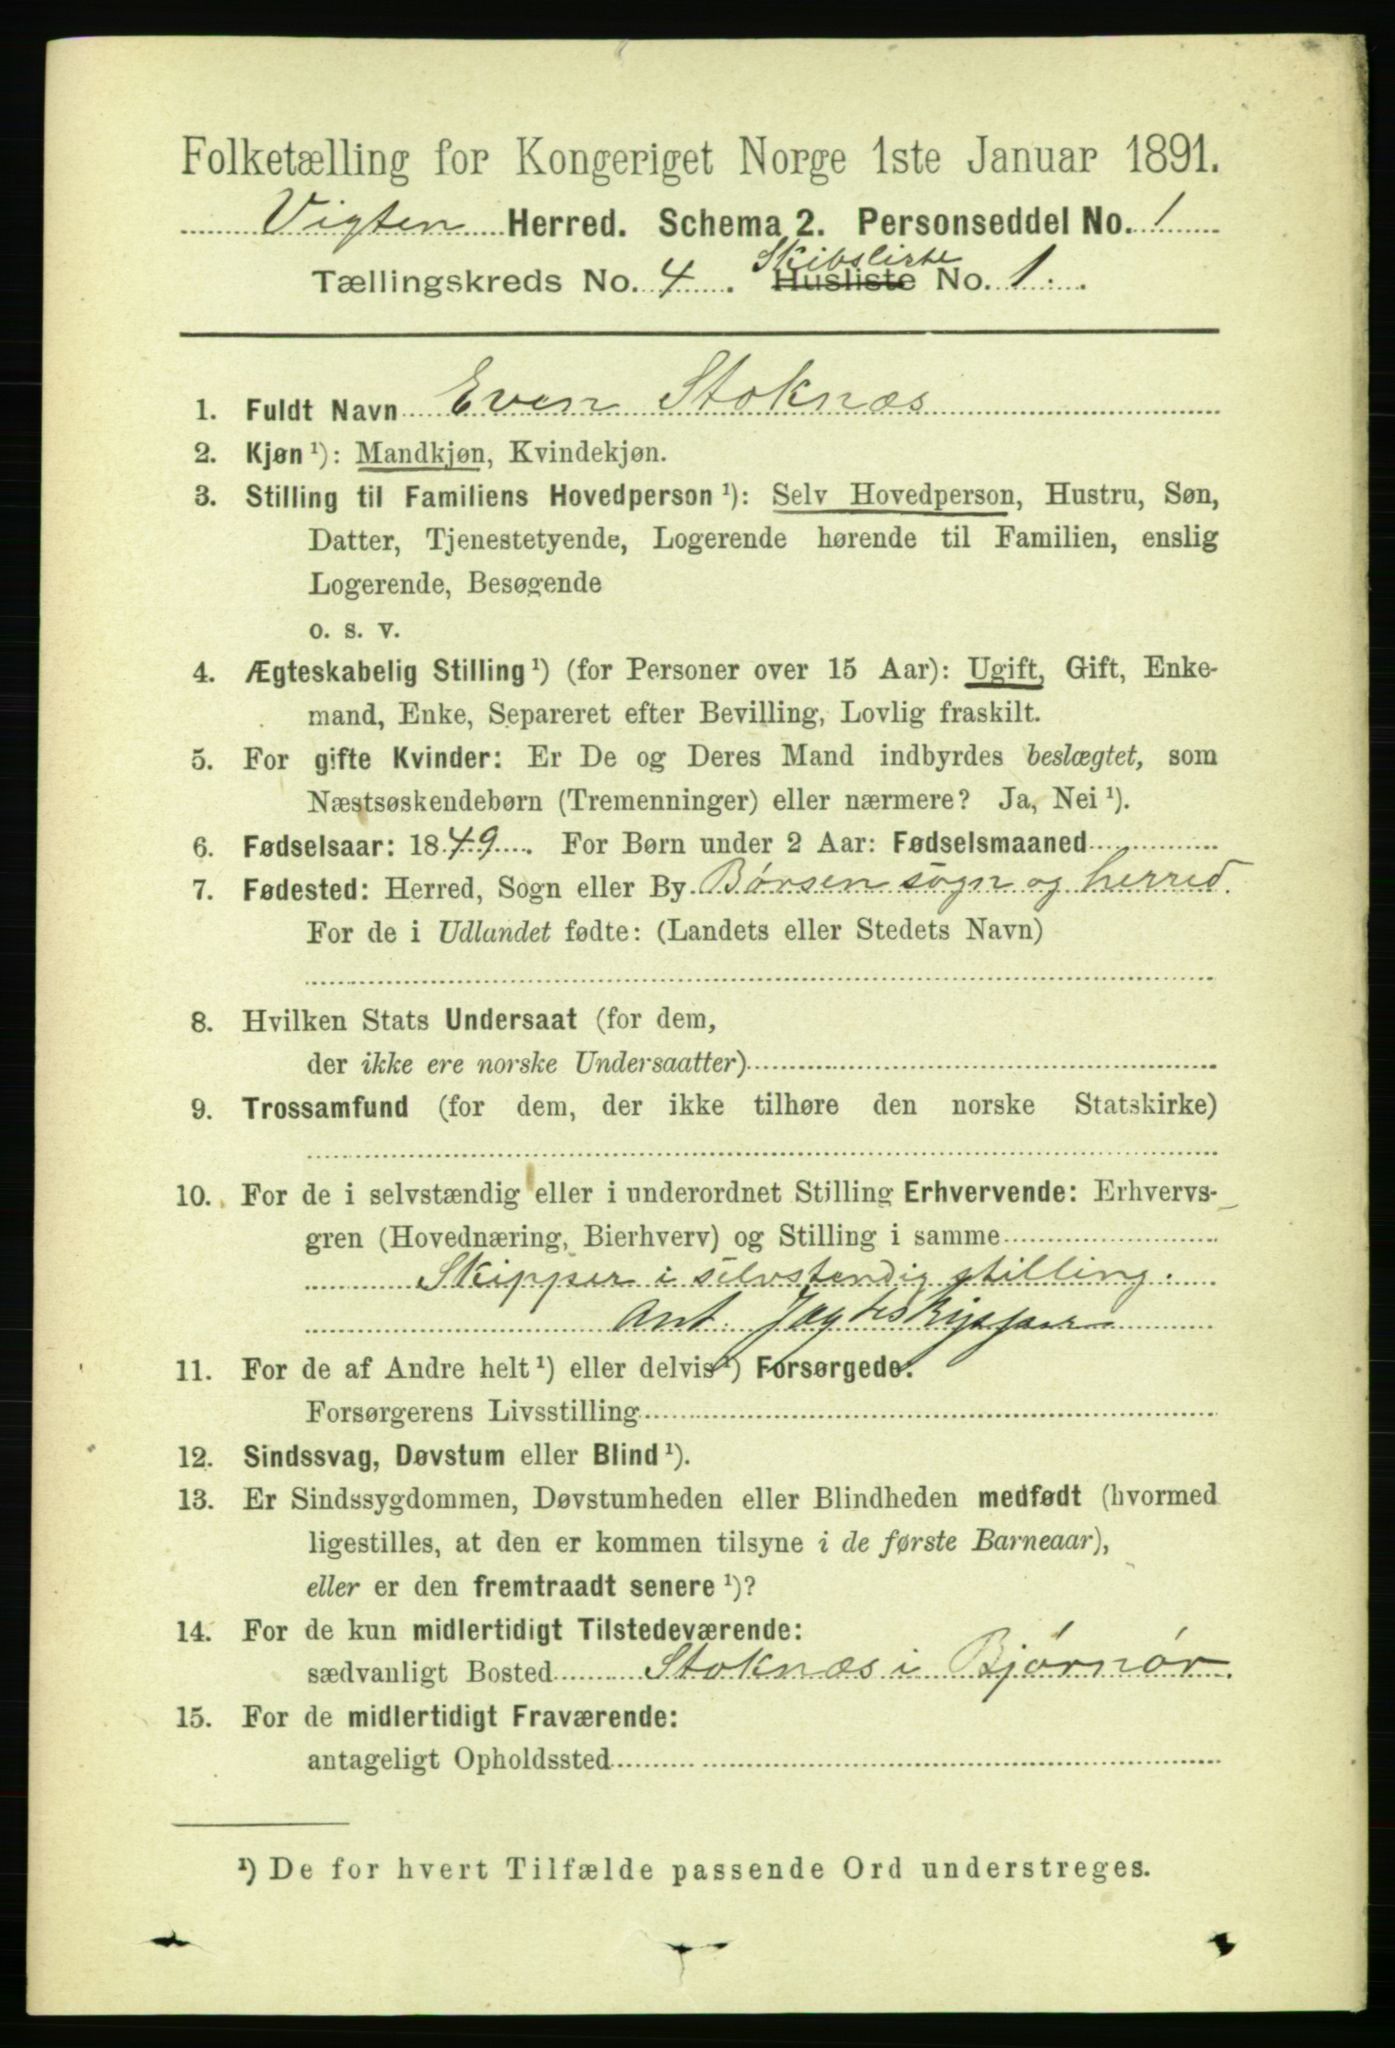 Folketælling for Kongeriget Norge 1ste Januar 1891.
Vigten Herred. Schema 2. Personseddel No. 1
Skibsliste
Tællingskreds No. 4. Husliste No. 1.
1. Fuldt Navn Even Stoknæs
2. Kjøn ¹): Mandkjøn, Kvindekjøn.
3. Stilling til Familiens Hovedperson ¹): Selv Hovedperson, Hustru, Søn,
Datter, Tjenestetyende, Logerende hørende til Familien, enslig
Logerende, Besøgende
o. s. v.
4. Ægteskabelig Stilling ¹) (for Personer over 15 Aar): Ugift, Gift, Enke-
mand, Enke, Separeret efter Bevilling, Lovlig fraskilt.
5. For gifte Kvinder: Er De og Deres Mand indbyrdes beslægtet, som
Næstsøskendebørn (Tremenninger) eller nærmere? Ja, Nei ¹).
6. Fødselsaar: 1849. For Børn under 2 Aar: Fødselsmaaned
7. Fødested: Herred, Sogn eller By Børsen sogn og herred.
For de i Udlandet fødte: (Landets eller Stedets Navn)
8. Hvilken Stats Undersaat (for dem,
der ikke ere norske Undersaatter)
9. Trossamfund (for dem, der ikke tilhøre den norske Statskirke)
10. For de i selvstændig eller i underordnet Stilling Erhvervende: Erhvervs-
gren (Hovednæring, Bierhverv) og Stilling i samme
Skipper i selvstendig stilling.
Ant. Jagtskipper
11. For de af Andre helt ¹) eller delvis ¹) Forsørgede:
Forsørgerens Livsstilling
12. Sindssvag, Døvstum eller Blind ¹).
13. Er Sindssygdommen, Døvstumheden eller Blindheden medfødt (hvormed
ligestilles, at den er kommen tilsyne i de første Barneaar),
eller er den fremtraadt senere ¹)?
14. For de kun midlertidigt Tilstedeværende:
sædvanligt Bosted Stoknæs i Bjørnør.
15. For de midlertidigt Fraværende:
antageligt Opholdssted
¹) De for hvert Tilfælde passende Ord understreges.